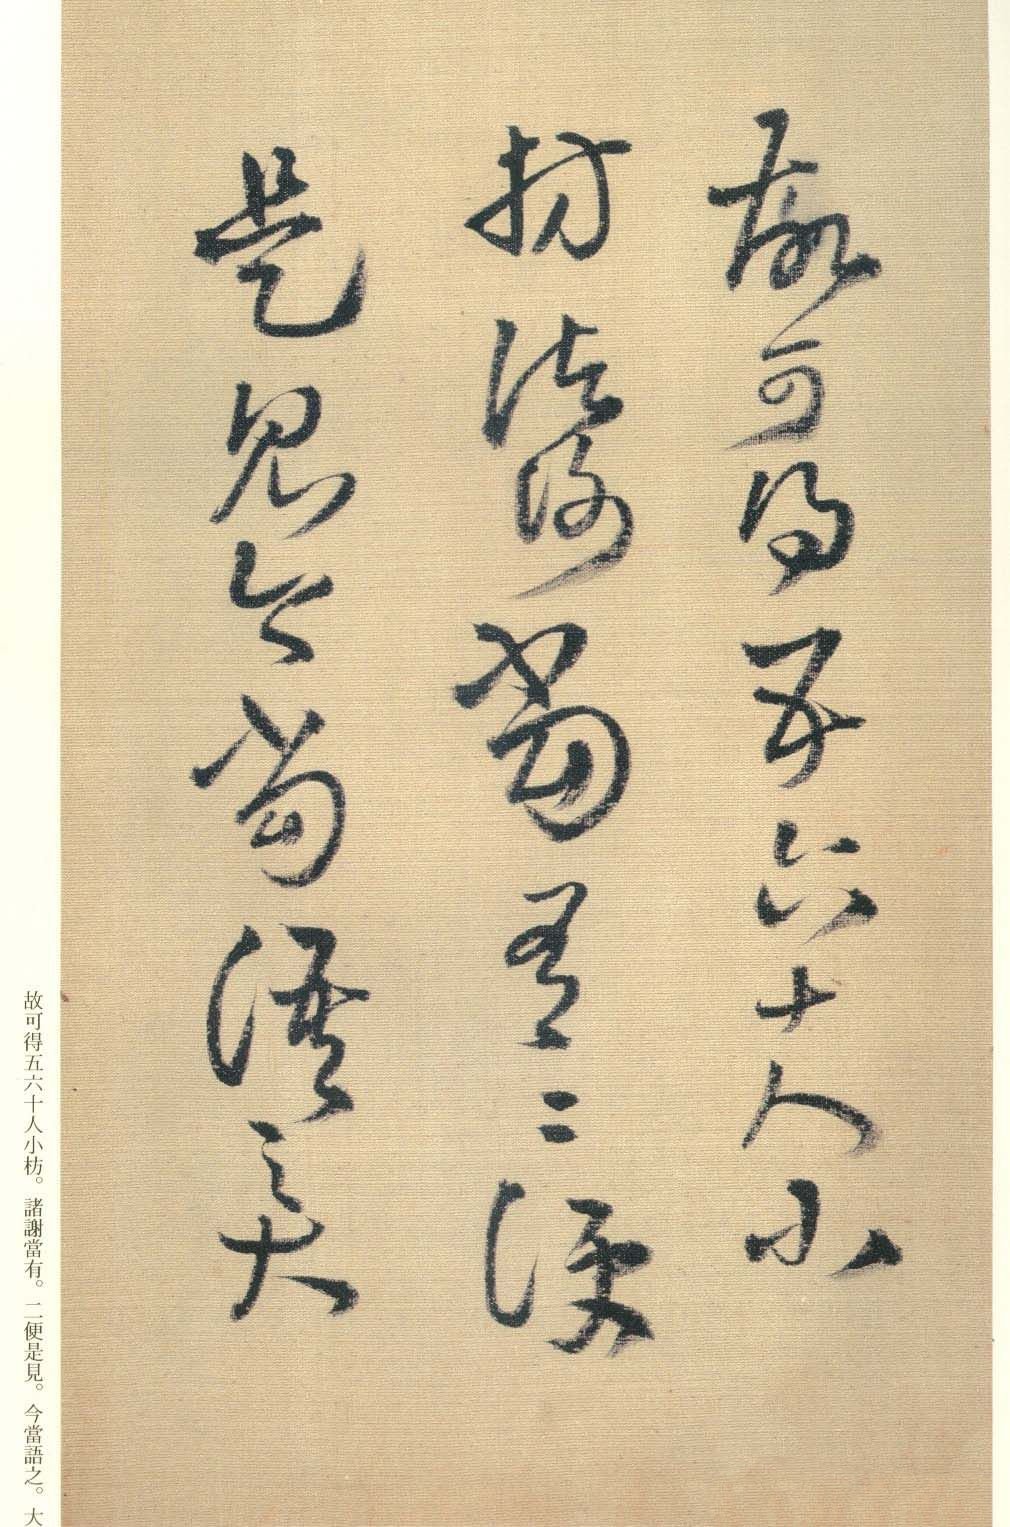 故可得五六十人小
枋諸謝當有二便
是見今當語之大
故可得五六十人小枋。諸謝當有。二便是見。今當語之。大